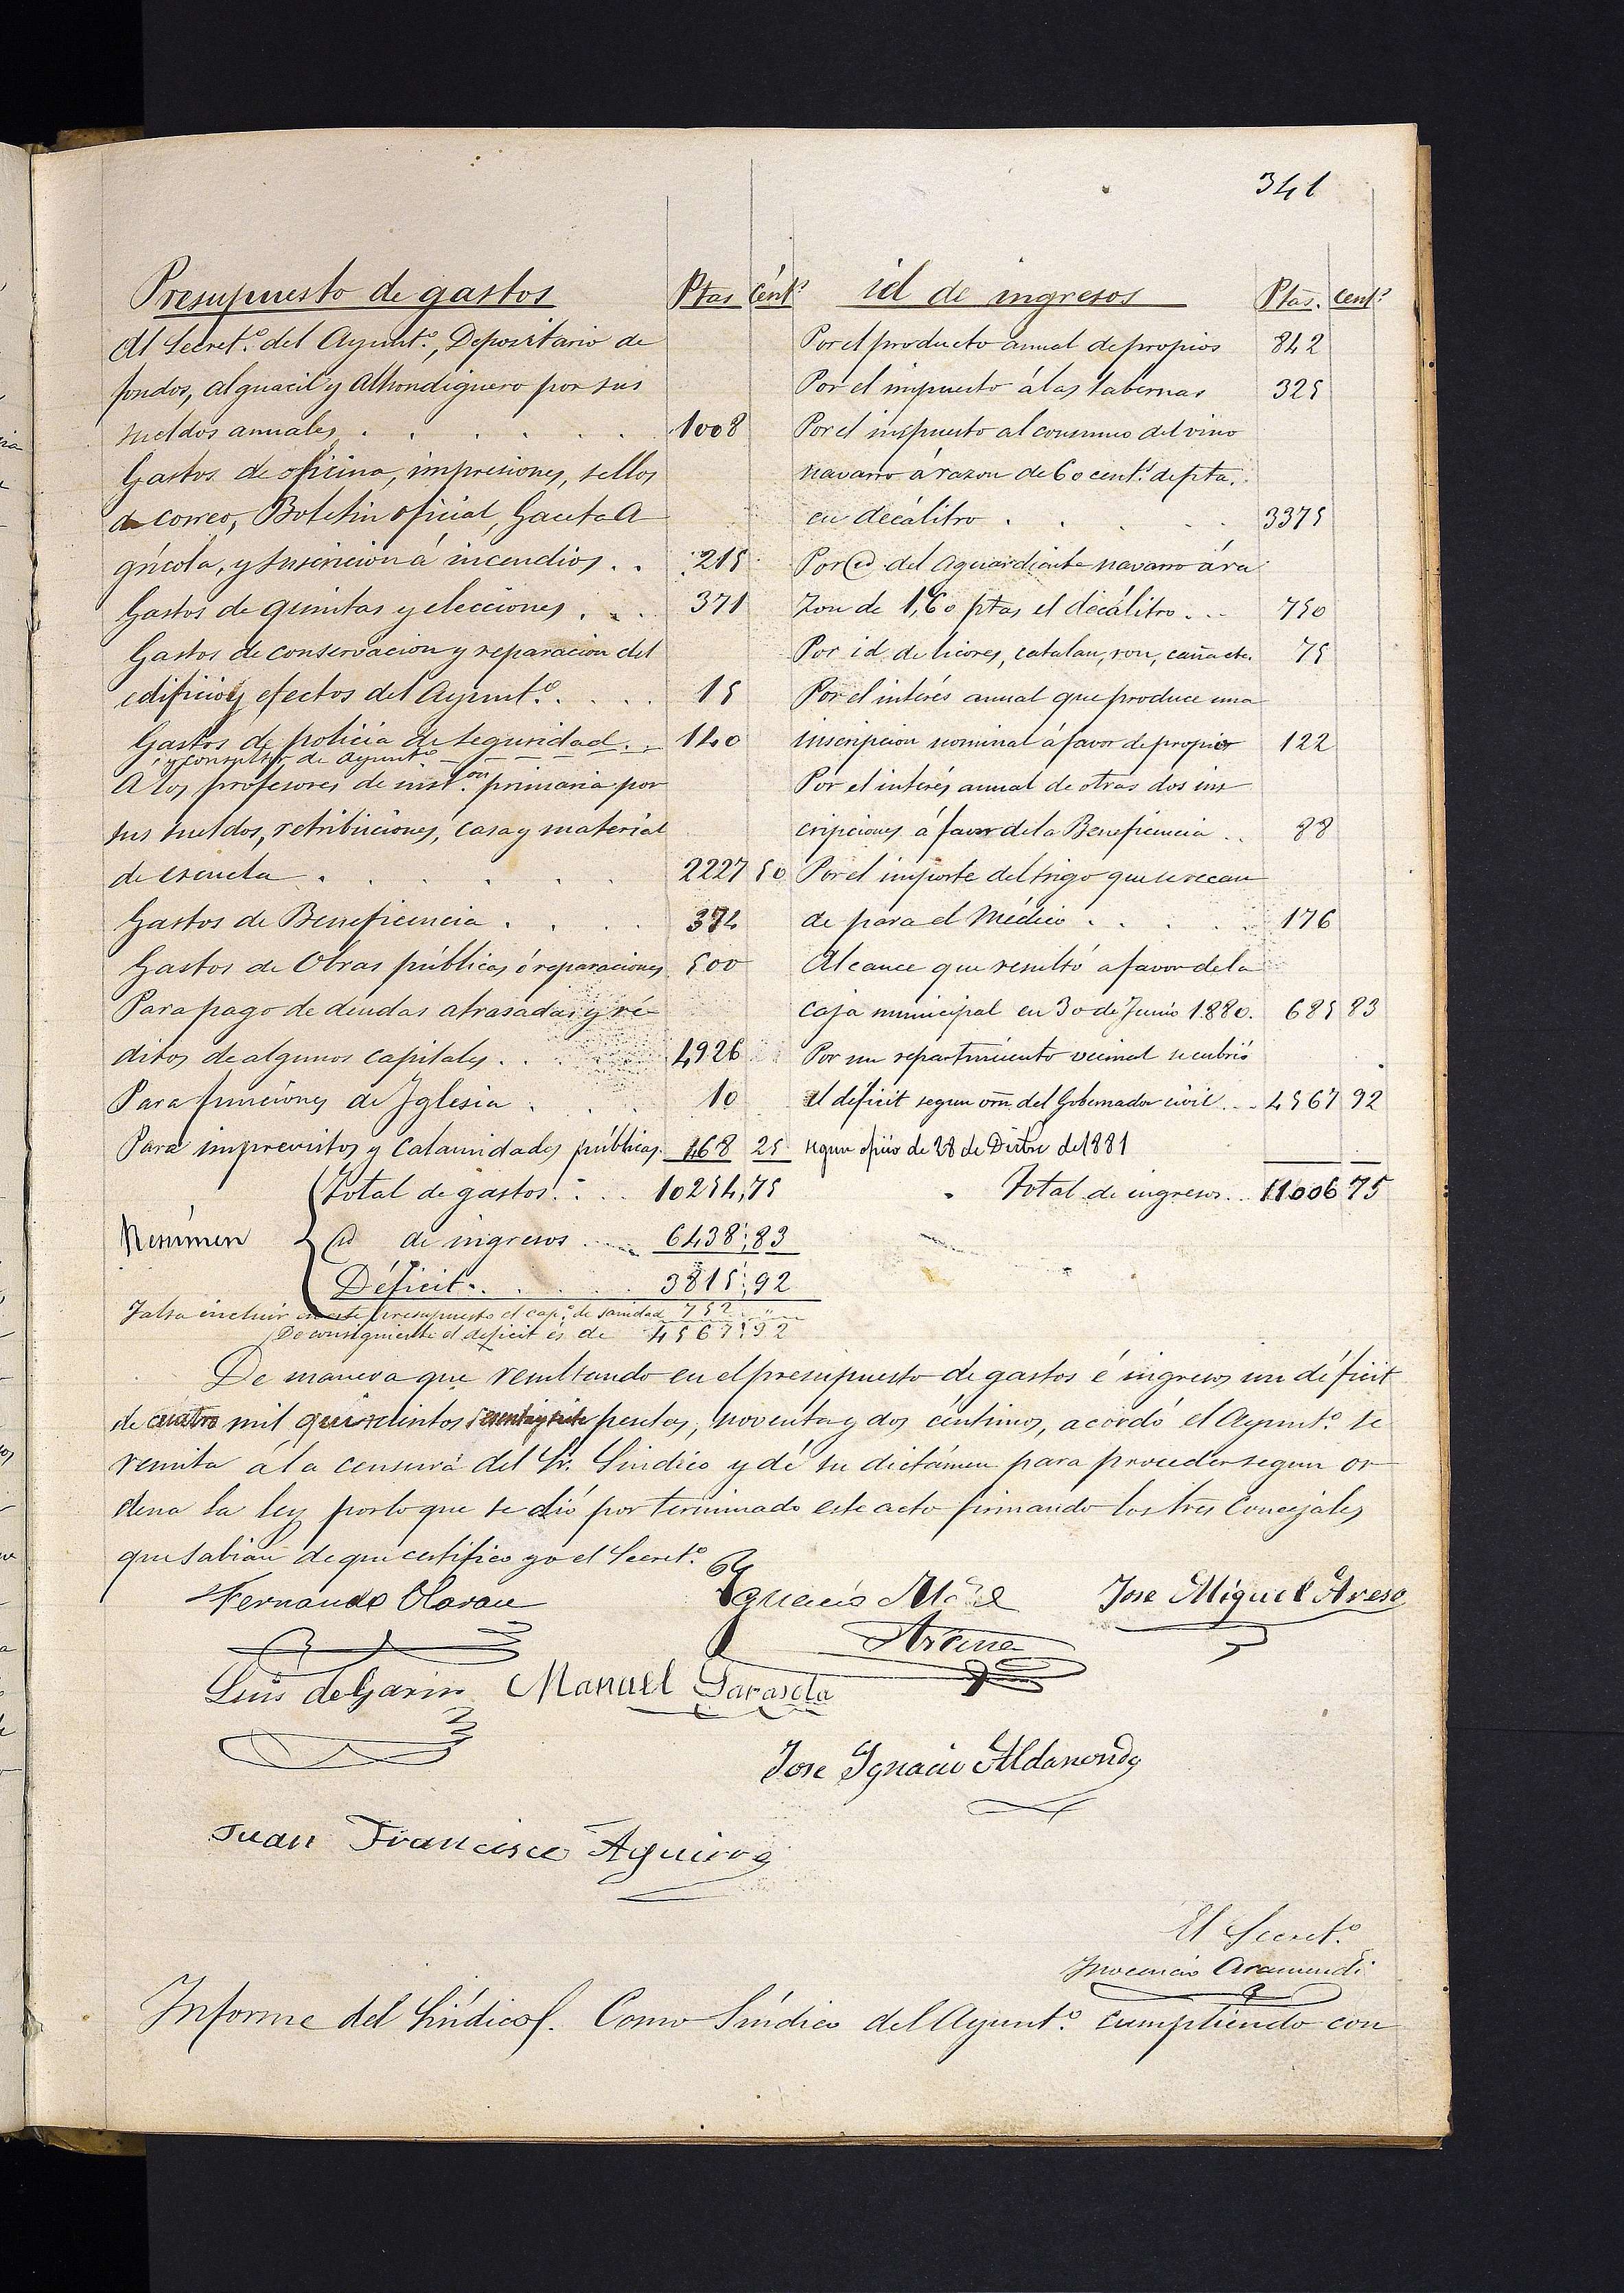 341
Presupuesto de gastos Ptas Cént.s
Al Secret.º del Ayunt.º, Depositario de
fondos, alguacil y Alhondiguero por sus
sueldos anuales . . . . . . 1008
Gastos de oficina, impresiones, sellos
de correo, Boletin oficial, Gaceta A
grícola, y suscricion á incendios . . 215
Gastos de quintas y elecciones . . . 371
Gastos de conservacion y reparacion del
edificio y efectos del Ayunt.º . . . . 15
Gastos de policia de seguridad . . 140
y consultas de Ayunt.º
A los profesores de inst.on primaria por
sus sueldos, retribuciones, casa y material
de escuela . . . . . . 2227 50
Gastos de Beneficencia . . . . 374
Gastos de Obras públicas ó reparaciones 500
Para pago de deudas atrasadas y ré
ditos de algunos capitales . . . . 4926
Para funciones de Iglesia . . . . 10
Para imprevistos y calamidades públicas. 468 25
id de ingresos Ptas. cent.s
Por el producto anual de propios 842
Por el impuesto á las tabernas 325
Por el impuesto al consumo del vino
navarro á razon de 60 cent.s de pta.
en decálitro . . . . . 3375
Por id del Aguardiente navarro á ra
zon de 1,60 ptas el decálitro . . . 750
Por id de licores, catalan, ron, caña etc. 75
Por el interés anual que produce una
inscripcion nominal á favor de propios 122
Por el interés anual de otras dos ins
cripciones á favor de la Beneficencia . . 88
Por el importe del trigo que se recau
de para el Médico . . . . . 176
Alcance que resultó a favor de la
caja municipal en 30 de Junio 1880. 685 83
Por un repartimiento vecinal se cubrió
el déficit segun orn. del Gobernador civil . . . 4567 92
segun oficio de 28 de Dicbre de 1881
Total de ingresos . . 11006 75
Resúmen
Total de gastos . . . . 10254,75
id de ingresos . . . . 6438,83
Déficit . . . . . 3815,92
Falta incluir en este presupuesto el cap.º de sanidad 752 "
De consiguiente el deficit es de 4567,92
De manera que resultando en el presupuesto de gastos é ingresos un déficit
de cuatro mil quinientos sesenta y siete pesetas, noventa y dos céntimos, acordó el Ayunt.º se
remita á la censura del Sr. Síndico y dé su dictámen para proceder segun or
dena la ley por lo que se dió por terminado este acto firmando los tres Concejales
que sabian de que certifico yo el Secret.º
Fernando Olaran Ignacio Jose Miguel Areso
Luis de Garin Manuel Garasola
Jose Ignacio Aldanondo
Juan Francisco Aguirre
El Secret.º
Inocencio Aramendi
Informe del Síndico. Como Síndico del Ayunt.º cumpliendo con